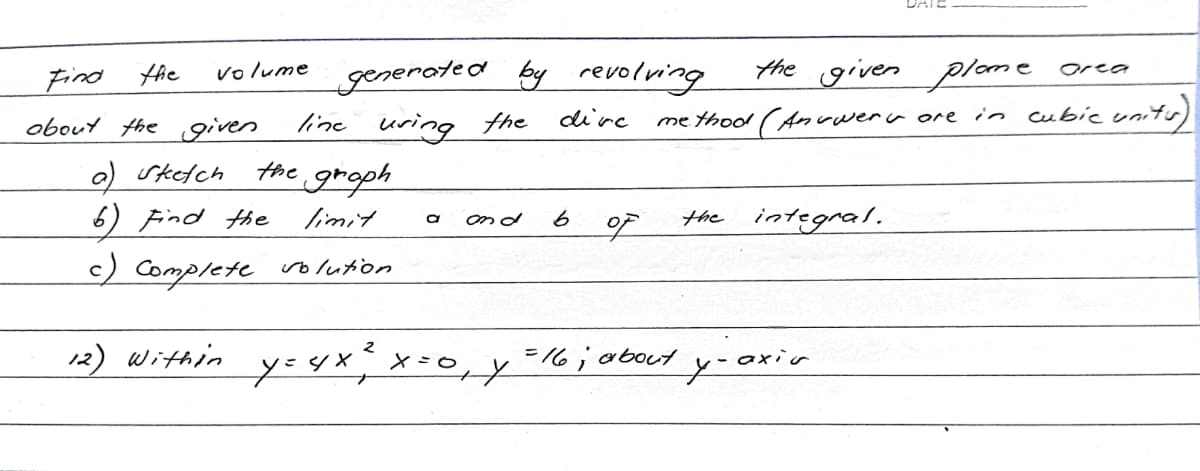 DATE
Find the volume generated by revolving the given plane area
about the given line using the disc method (Answers are in cubic units)
a) Sketch the graph
b) Find the limit a and b of the integral.
c) Complete solution
12) Within y=4x², x=0, y=16; about y-axis